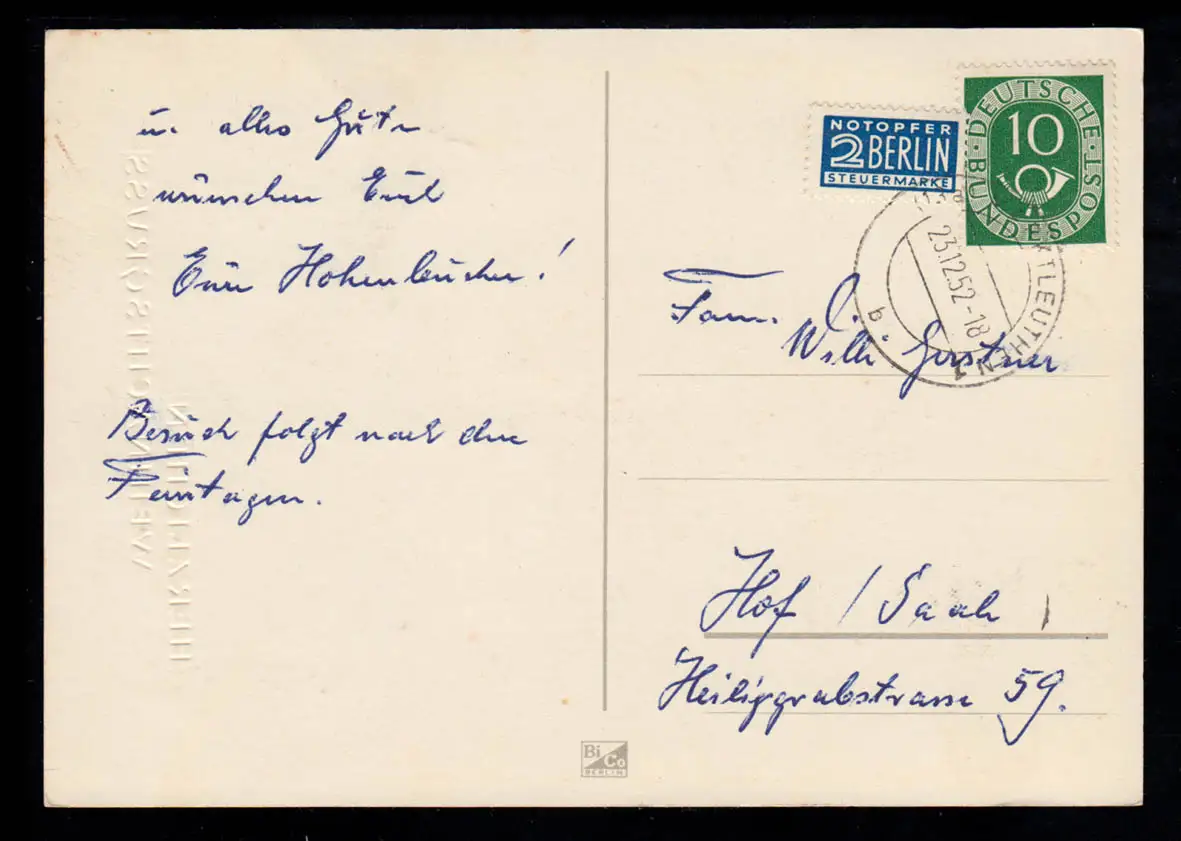 u. alles Gute
wünschen Euch
Eure
Besuch folgt nach den
Feiertagen.
NOTOPFER
2 BERLIN
STEUERMARKE
DEUTSCHE BUNDESPOST
10
23.12.52-18
MARKTLEUTHEN
b
Fam.
Willi Gerstner
Hof / Saale
Heiliggrabstrasse 59.
Bi Co
BERLIN
HERZLICHEN
WEIHNACHTSGRUSS